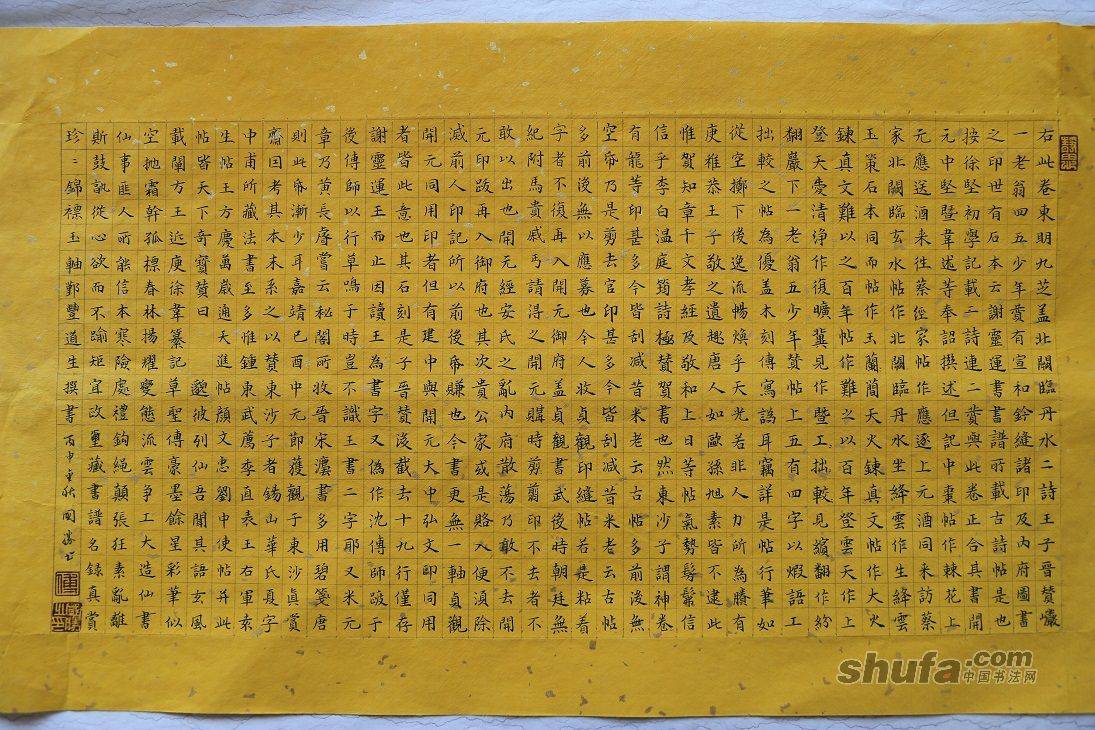 右此卷東明九芝盖北闕臨丹水二詩王子晉赞巖下
一老翁四五少年赞有宣和鈐縫諸印及內府圖書
之印世有石本云謝靈運書書譜所載古詩帖是也
按徐堅初學記載二詩連二赞與此卷正合其書開
元中暨韋述等奉詔撰述但記中棗帖作棘花上
元應送酒来徃蔡經家帖作應逐上元酒同来訪蔡
家北闕臨玄水帖作北闕臨丹水坐絳雲作生絳雲
玉棗石本同而帖作玉蘭簡天火鍊真文帖作大火
鍊真文難以之百年帖作難之以百年登雲天作上
登天棗清淨作復曠冀見作暨工拙較見繽翻作紛
翻巖下一老翁五少年赞帖上五有四字以煆語工
拙較之帖為優盖木刻傳寫譌耳竊詳是帖行筆如
從空擲下俊逸流暢煥乎天光若非人力所為賸有
庚稚恭王子敬之遺趣唐人如歐孫旭素皆不逮此
惟賀知章千文孝經及敬和上日等帖氣勢髣髴信
信乎李白温庭筠詩極赞賀書也然東沙子謂神卷
有龍等印甚多今皆刮减昔米老云古帖多前後無
空帋乃是剪去官印
多前後無以應募也今人收貞觀印縫帖若是粘着
字者不復再入開元御府盖貞觀書武後時朝廷無
紀附馬貴戚丐請淂之開元購時剪印不去者不
敢以出也開元經安氏之亂內府散蕩乃敢不去開
元印跋再入御府也其次貴公家或是賂入便湏除
减前人印記所以前後帋賺也今書更無一軸貞觀
開元同用印者但有建中與開元大中弘文印同用
者皆此意也其石刻是子晉赞後截去十九行僅存
謝靈運王而止因讀王為書字又偽作沈傳師跋于
後傳師以行草鳴于時豈不識王書二字耶又米元
章乃黃長睿嘗云秘閣所收晉宋灋書多用碧箋唐
則此帋漸少耳嘉靖己酉中元節獲觀于東沙真賞
齋囙考其本末系之以赞東沙子者錫山華氏夏字
中甫所藏法書至多惟鍾東武薦季直表王右軍袁
生帖王方慶萬歲通天進帖顔文忠劉中使帖并此
帖皆天下奇寶赞曰　邈彼列仙吾聞其語玄風
載闡方王近庚徐韋纂記草聖傳豪墨餘星彩筆似
空拋霜幹孤標春林揚耀變態流雲争工大造仙書
仙事匪人所能信本寒險虔禮鈎繩顛張狂素亂離
斯鼓孰從心欲而不踰矩宜改璽藏書譜名録真賞
珍〻錦褾玉軸鄞豐道生撰書 丙申年秋
shufa.com
中国书法网